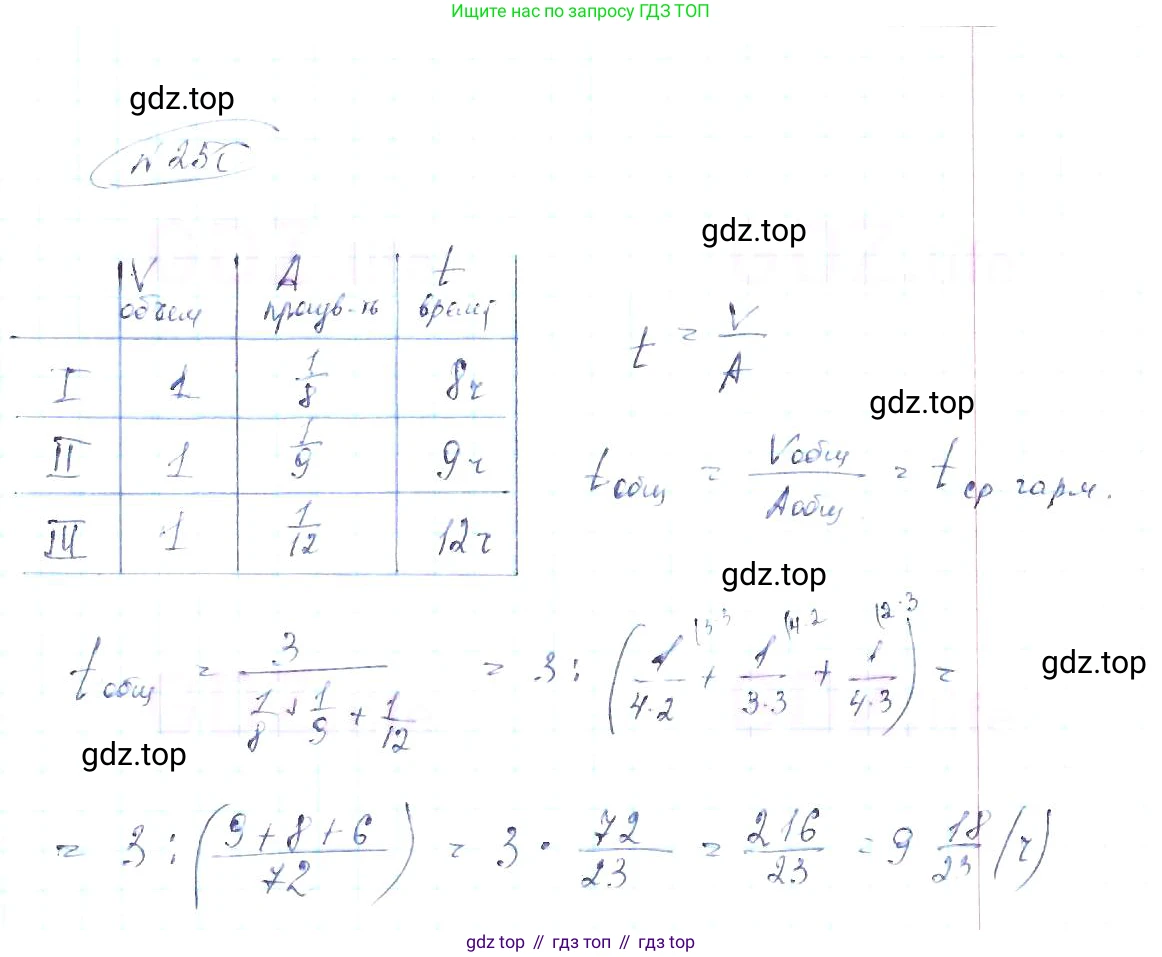 Ищите нас по запросу ГДЗ ТОП
gdz.top
№ 25
gdz.top
V A t
объем произв-ть время
I 1 1/8 8ч
II 1 1/9 9ч
III 1 1/12 12ч
t = V/A
gdz.top
tобщ = Vобщ/Aобщ = tср гарм.
gdz.top
tобщ = 3/(1/8 + 1/9 + 1/12) = 3 : (1/(4·2) |3·3 + 1/(3·3) |4·2 + 1/(4·3) |2·3) =
gdz.top
gdz.top
= 3 : ((9+8+6)/72) = 3 · 72/23 = 216/23 = 9 18/23 (ч)
gdz top // гдз топ // gdz top